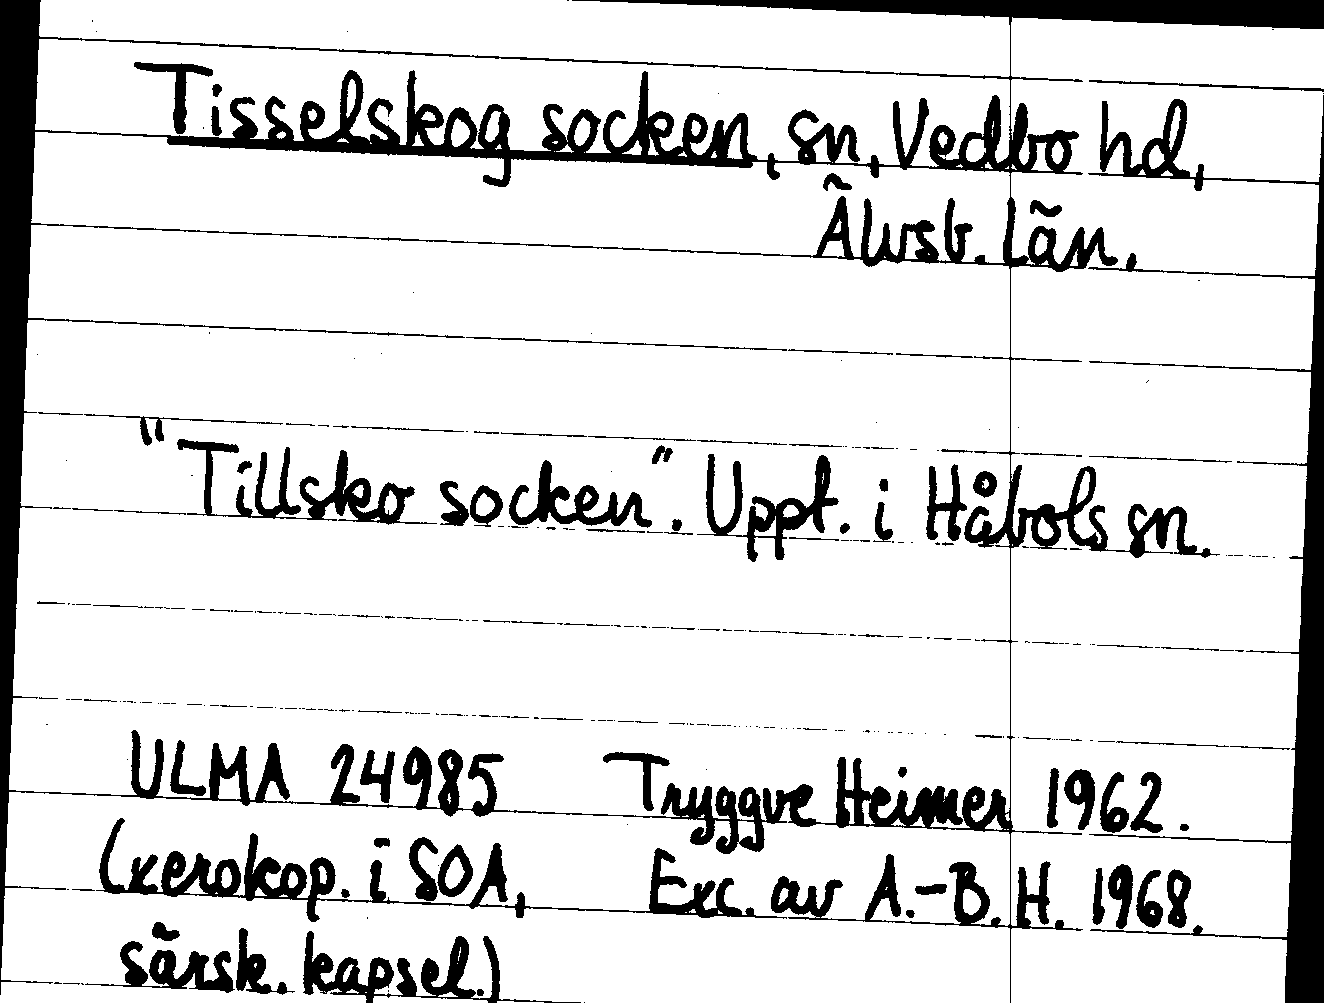 Tisselskog socken, sn, Vedbo hd,
Älvsb. län.
"Tillsko socken". Uppt. i Håbols sn.
ULMA 24985 Tryggve Heimer 1962.
(xerokop. i SOA, Exc. av A.-B. H. 1968.
särsk. kapsel.)